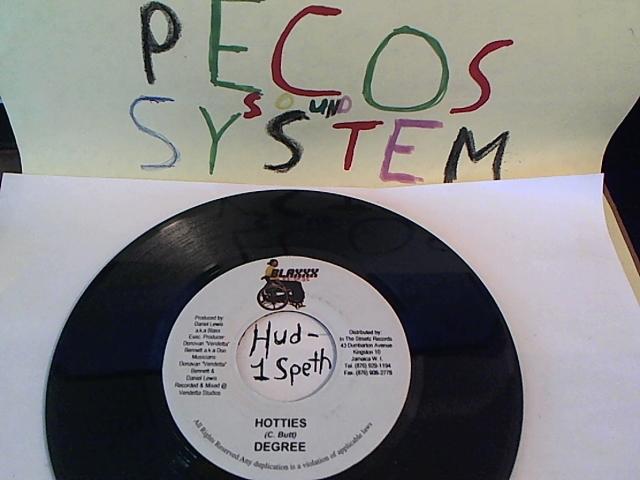 PECOS
SOUND
SYSTEM
BLAXXX
Produced by
Daniel Lewis
a.k.a Blaxx
Exec. Producer
Donovan "Vendetta"
Bennett a.k.a Don
Musicians
Donovan "Vendetta"
Bennett &
Daniel Lewis
Recorded & Mixed @
Vendetta Studios
Hud-
1 Speth
Distributed by:
In The Streets Records
43 Dumbarton Avenue
Kingston 10
Jamaica W. I.
Tel. (876) 929-1194
Fax. (876) 908-3778
HOTTIES
(C. Butt)
DEGREE
All Rights Reserved Any duplication is a violation of applicable laws